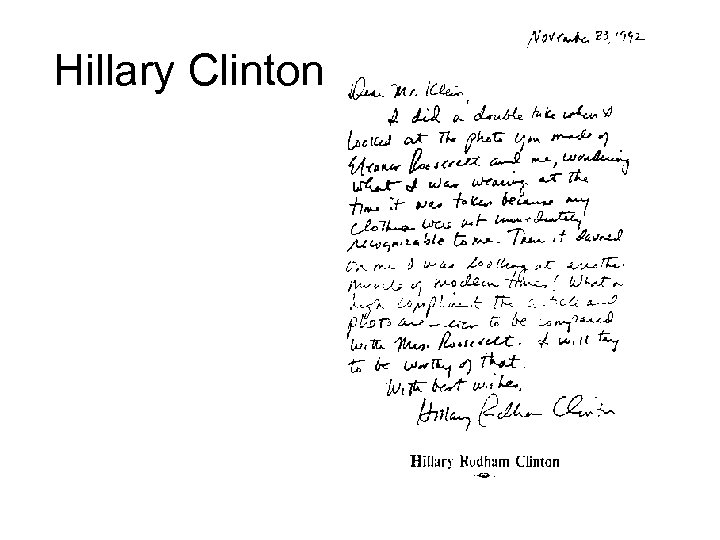 Hillary Clinton
November 23, 1992
Dear Mr. Klein,
I did a double take when I
looked at the photo you made of
Eleanor Roosevelt and me, wondering
what I was wearing at the
time it was taken because my
clothes were not immediately
recognizable to me. Then it dawned
on me I was looking at another
miracle of modern times! What a
high compliment the article and
photo are – even to be compared
with Mrs. Roosevelt. I will try
to be worthy of that.
With best wishes,
Hillary Rodham Clinton
Hillary Rodham Clinton